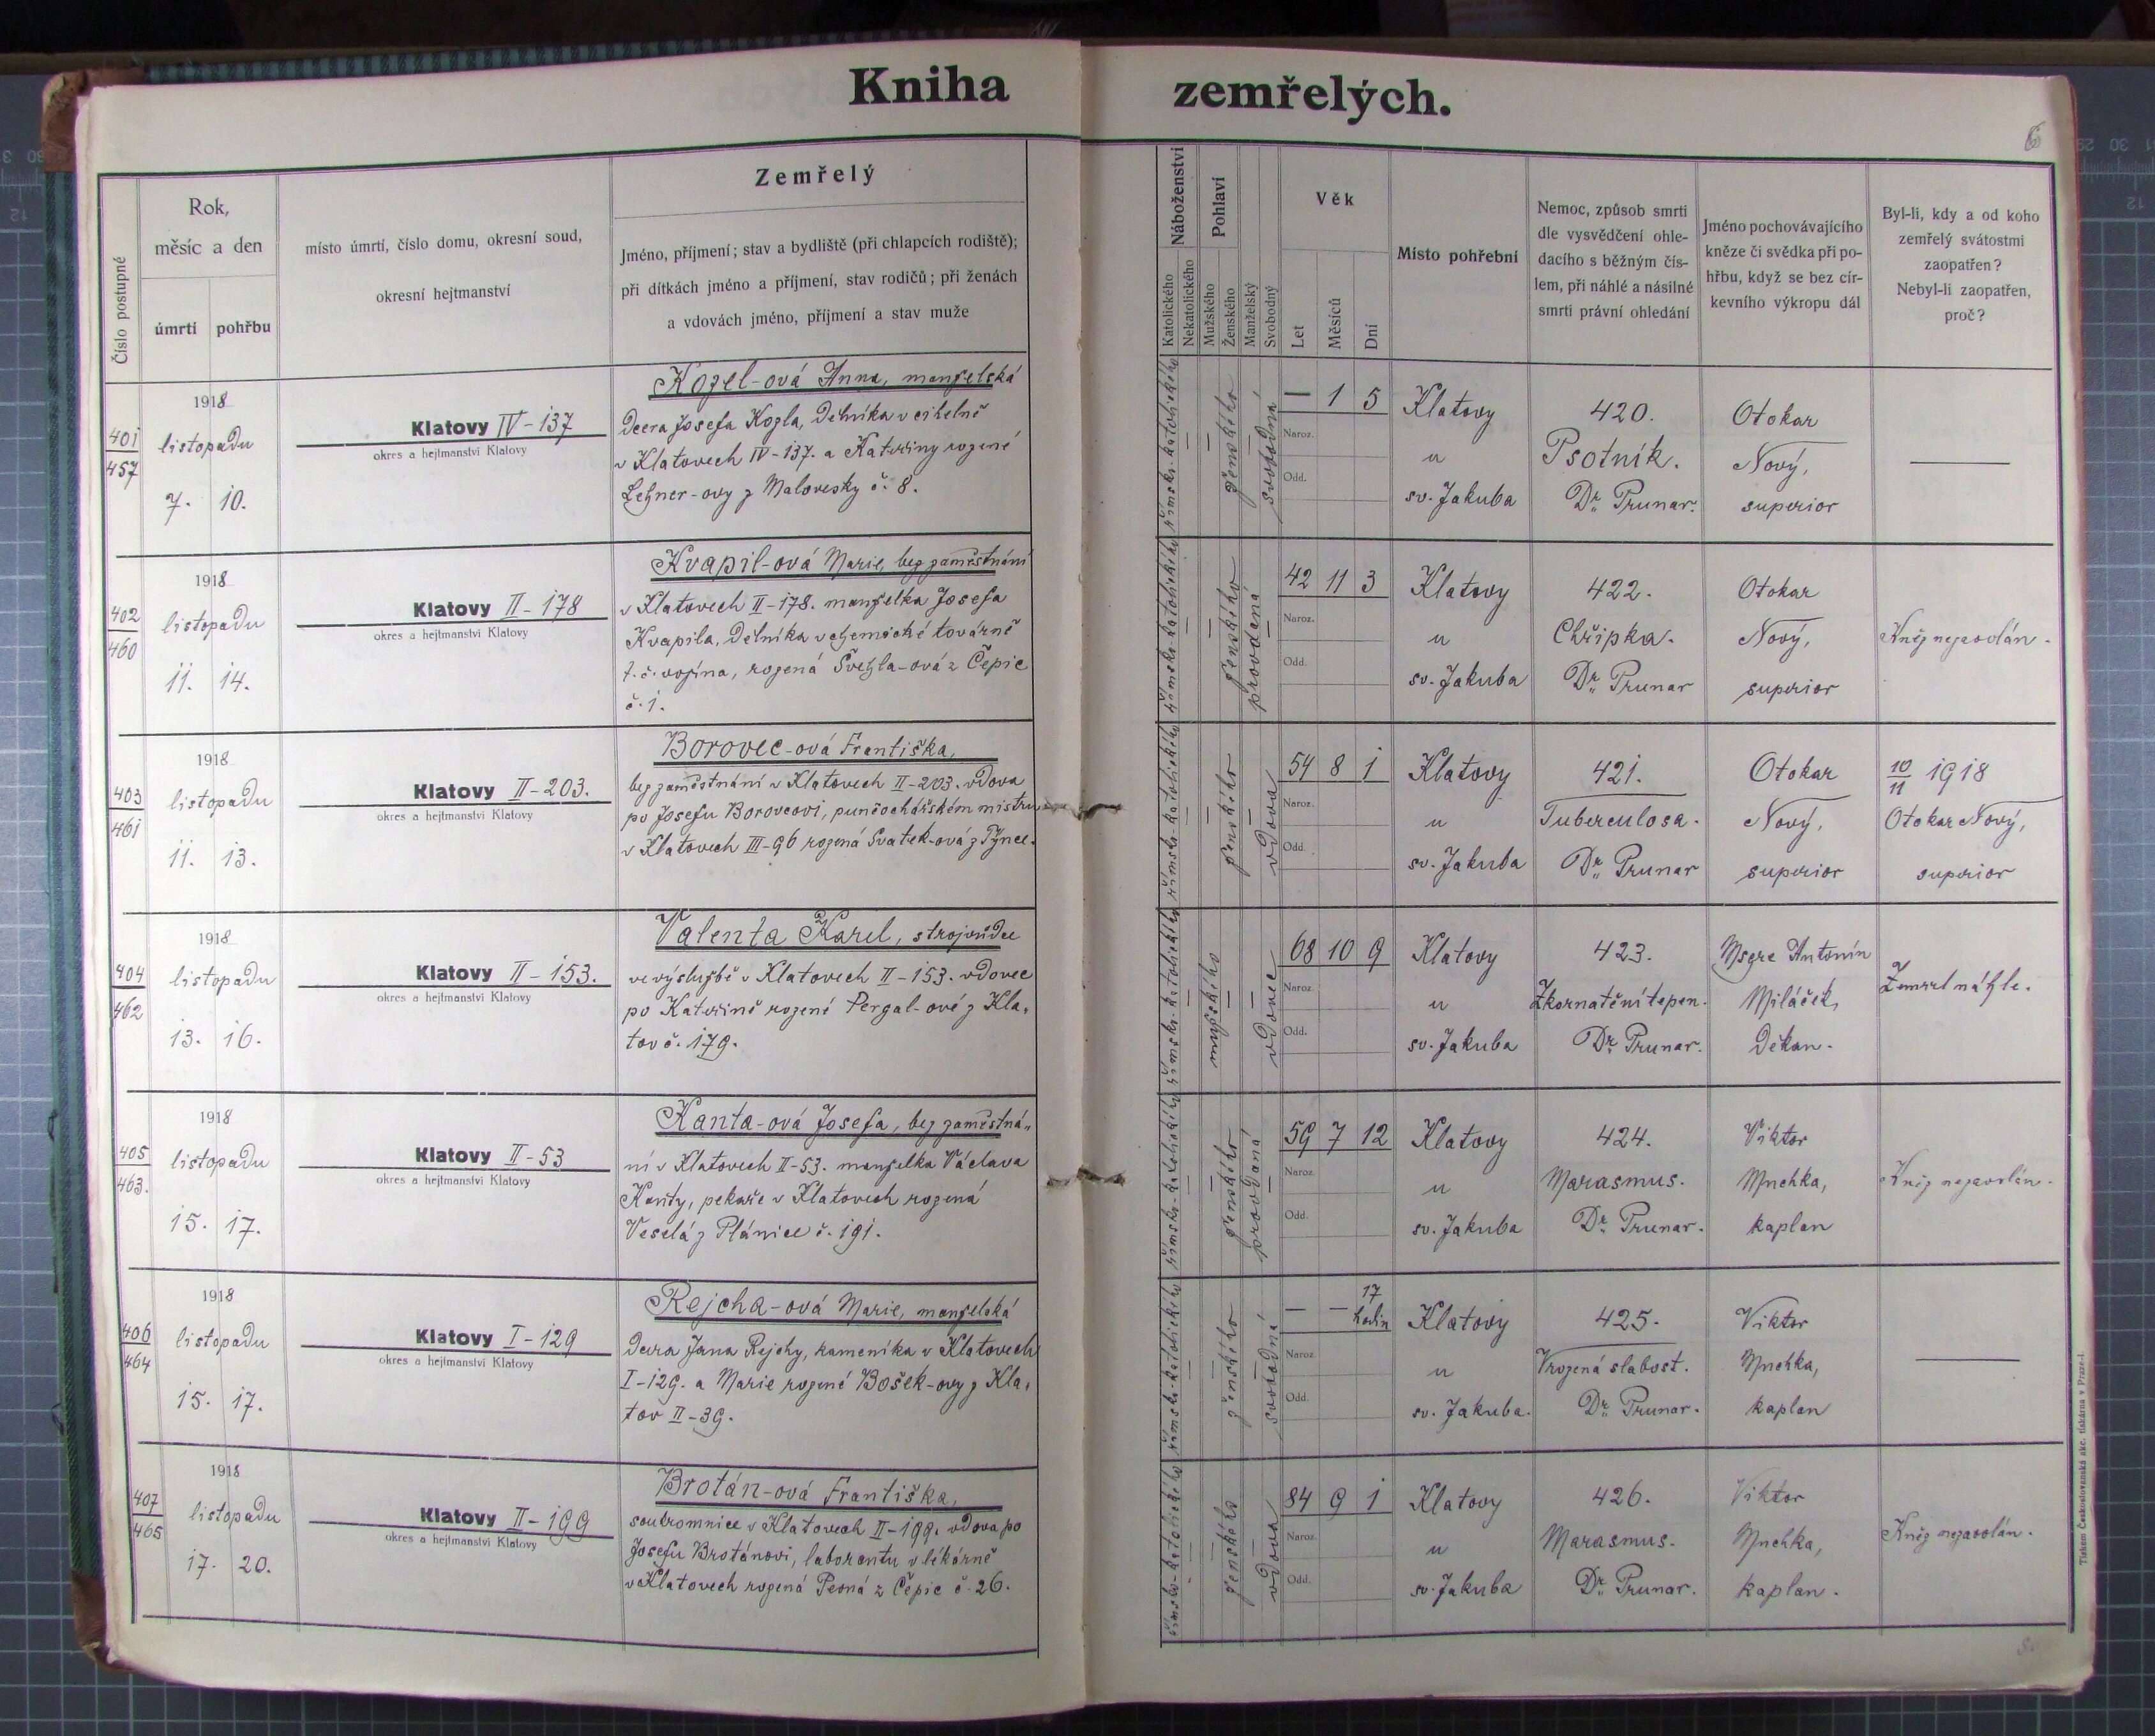 Kniha zemřelých.
6
Číslo postupné
Rok,
měsíc a den
úmrtí
pohřbu
místo úmrtí, číslo domu, okresní soud,
okresní hejtmanství
Zemřelý
Jméno, příjmení; stav a bydliště (při chlapcích rodiště);
při dítkách jméno a příjmení, stav rodičů; při ženách
a vdovách jméno, příjmení a stav muže
Náboženství
Katolického
Nekatolického
Pohlaví
Mužského
Ženského
Manželský
Svobodný
Věk
Let
Měsíců
Dní
Místo pohřební
Nemoc, způsob smrti
dle vysvědčení ohle-
dacího s běžným čís-
lem, při náhlé a násilné
smrti právní ohledání
Jméno pochovávajícího
kněze či svědka při po-
hřbu, když se bez cír-
kevního výkropu dál
Byl-li, kdy a od koho
zemřelý svátostmi
zaopatřen?
Nebyl-li zaopatřen,
proč?
401
457
1918
listopadu
7. 10.
Klatovy IV-137
okres a hejtmanství Klatovy
Kozel-ová Anna, manželská
dcera Josefa Kozla, dělníka v cihelně
v Klatovech IV-137. a Kateřiny rozené
Lehner-ovy z Malovesky č. 8.
římsko-katolického
ženského
svobodná
— 1 5
Naroz.
Odd.
Klatovy
u
sv. Jakuba
420.
Psotník.
Dr. Prunar.
Otokar
Nový,
superior
—
402
460
1918
listopadu
11. 14.
Klatovy II-178
okres a hejtmanství Klatovy
Kvapil-ová Marie, bez zaměstnání
v Klatovech II-178. manželka Josefa
Kvapila, dělníka v chemické továrně
t. č. vojína, rozená Švehla-ová z Čepic
č. 1.
římsko-katolického
ženského
provdaná
42 11 3
Naroz.
Odd.
Klatovy
u
sv. Jakuba
422.
Chřipka.
Dr. Prunar
Otokar
Nový,
superior
Kněz nezavolán.
403
461
1918
listopadu
11. 13.
Klatovy II-203.
okres a hejtmanství Klatovy
Borovec-ová Františka,
bez zaměstnání v Klatovech II-203. vdova
po Josefu Borovcovi, punčochářském mistru
v Klatovech III-96 rozená Svatek-ová z Týnce.
římsko-katolického
ženského
vdova
54 8 1
Naroz.
Odd.
Klatovy
u
sv. Jakuba
421.
Tuberculosa.
Dr. Prunar
Otokar
Nový,
superior
10/11 1918
Otokar Nový,
superior
404
462
1918
listopadu
13. 16.
Klatovy II-153.
okres a hejtmanství Klatovy
Valenta Karel, strojvůdce
ve výslužbě v Klatovech II-153. vdovec
po Kateřině rozené Pergal-ové z Kla-
tov č. 179.
římsko-katolického
mužského
vdovec
68 10 9
Naroz.
Odd.
Klatovy
u
sv. Jakuba
423.
Zkornatění tepen.
Dr. Prunar.
Msgre Antonín
Miláček,
děkan.
Zemřel náhle.
405
463.
1918
listopadu
15. 17.
Klatovy II-53
okres a hejtmanství Klatovy
Kanta-ová Josefa, bez zaměstná-
ní v Klatovech II-53. manželka Václava
Kanty, pekaře v Klatovech rozená
Veselá z Plánice č. 191.
římsko-katolického
ženského
provdaná
59 7 12
Naroz.
Odd.
Klatovy
u
sv. Jakuba
424.
Marasmus.
Dr. Prunar.
Viktor
Mnchka,
kaplan
Kněz nezavolán.
406
464
1918
listopadu
15. 17.
Klatovy I-129
okres a hejtmanství Klatovy
Rejcha-ová Marie, manželská
dcera Jana Rejchy, kameníka v Klatovech
I-129. a Marie rozené Bošek-ovy z Kla-
tov II-39.
římsko-katolického
ženského
svobodná
— — 17 hodin
Naroz.
Odd.
Klatovy
u
sv. Jakuba.
425.
Vrozená slabost.
Dr. Prunar.
Viktor
Mnchka,
kaplan
—
407
465
1918
listopadu
17. 20.
Klatovy II-199
okres a hejtmanství Klatovy
Brotán-ová Františka,
soukromnice v Klatovech II-199. vdova po
Josefu Brotánovi, laborantu v lékárně
v Klatovech rozená Pesná z Čepic č. 26.
římsko-katolického
ženského
vdova
84 9 1
Naroz.
Odd.
Klatovy
u
sv. Jakuba
426.
Marasmus.
Dr. Prunar.
Viktor
Mnchka,
kaplan.
Kněz nezavolán.
Tiskem Českoslovanská akc. tiskárna v Praze-I.